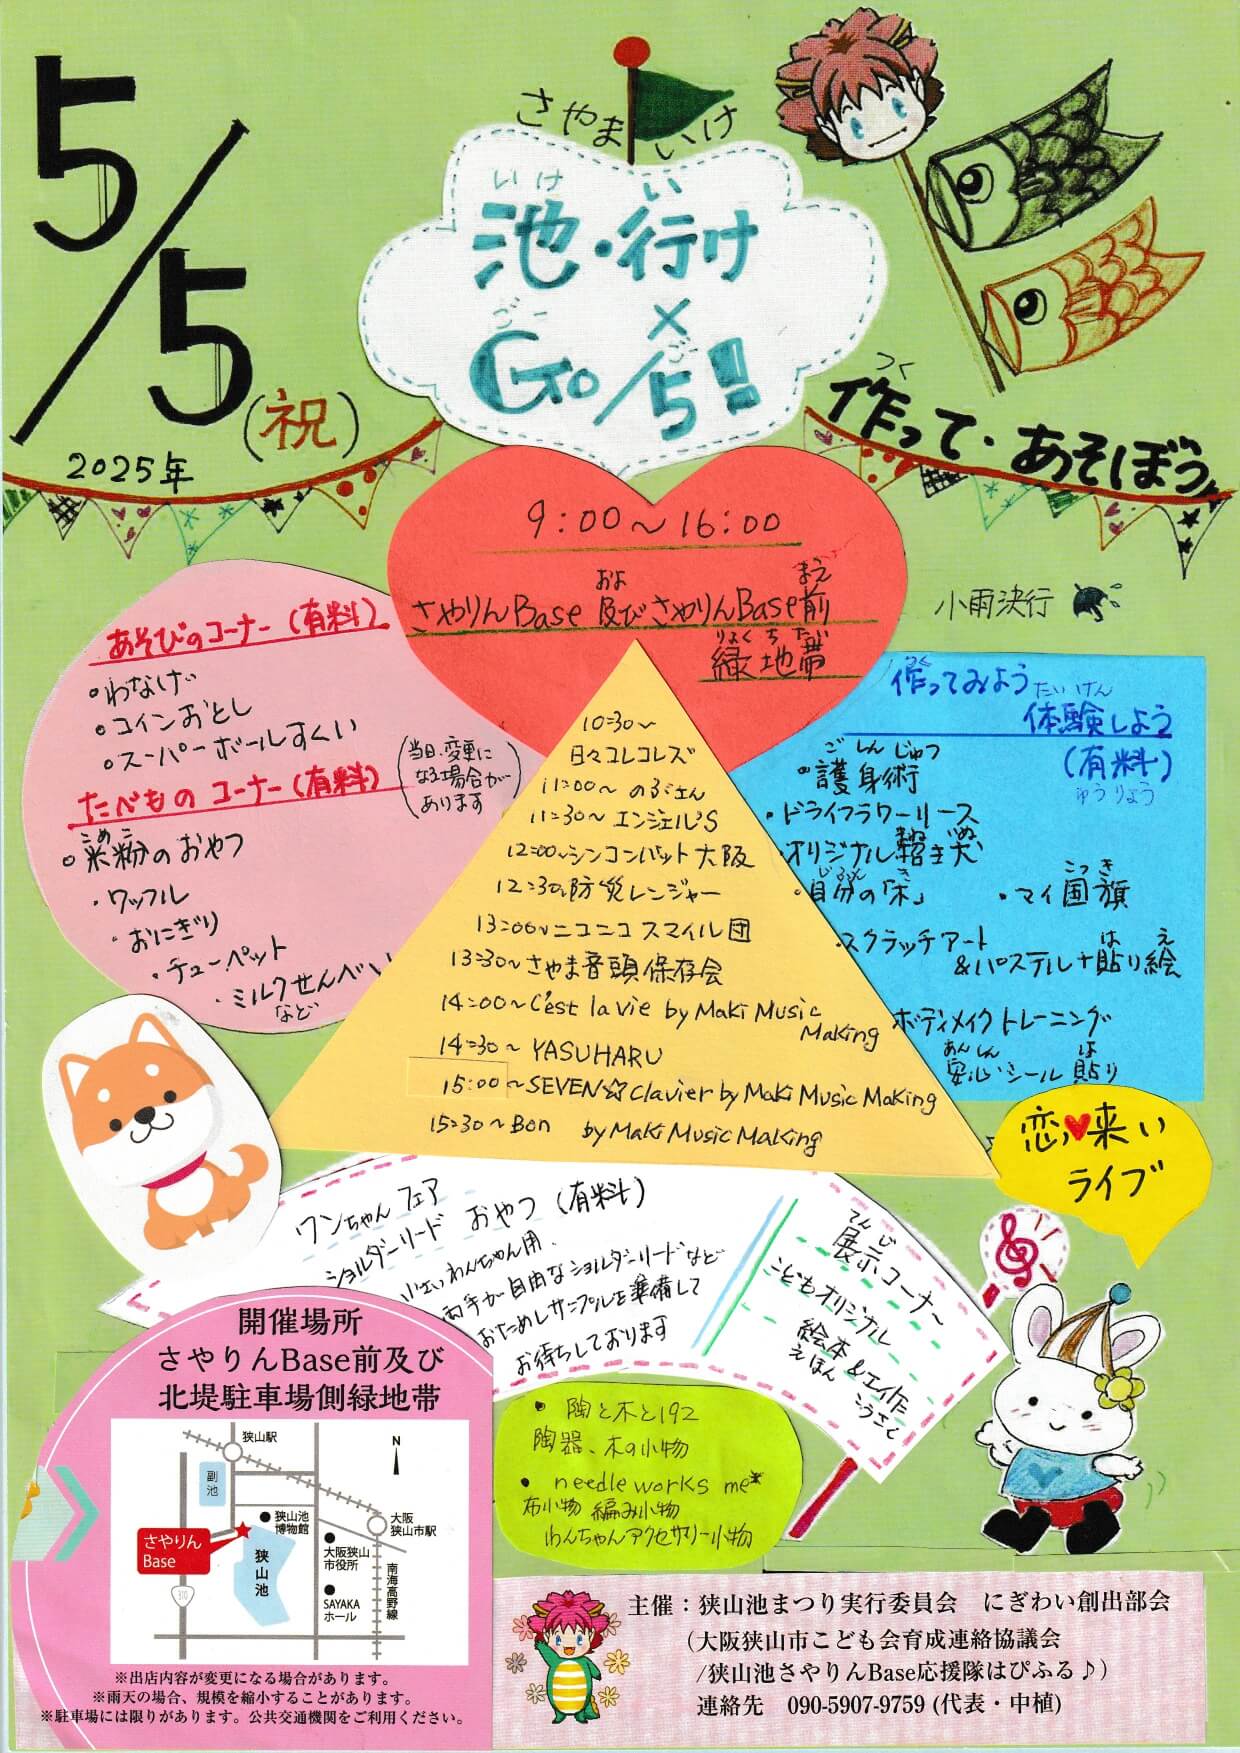 5/5
(祝)
2025年
さやまいけ
いけ い
池・行け
×
ゴー ご
Go/5!!
つく
作って・あそぼう
9:00～16:00
およ まえ
さやりんBase 及びさやりんBase前
りょくちたい
緑地帯
小雨決行
あそびのコーナー(有料)
○わなげ
○コインおとし
○スーパーボールすくい
たべもの コーナー(有料)
(当日、変更に
なる場合が
あります)
こめこ
○米粉のおやつ
・ワッフル
・おにぎり
・チューペット
・ミルクせんべい
など
10:30～
日々コレコレズ
11:00～ のぶさん
11:30～エンジェル'S
12:00～シンコンパット大阪
12:30～防災レンジャー
13:00～ニコニコスマイル団
13:30～さやま音頭保存会
14:00～C'est la vie by Maki Music
Making
14:30～ YASUHARU
15:00～SEVEN☆Clavier by Maki Music Making
15:30～Bon by Maki Music Making
つく
作ってみよう
たいけん
体験しよう
(有料)
ゆうりょう
ごしんじゅつ
・護身術
・ドライフラワーリース
まね いぬ
・オリジナル招き犬
じぶん き
・自分の「木」
こっき
・マイ国旗
・スクラッチアート
は え
&パステル+貼り絵
ボディメイクトレーニング
あんしん は
安心シール貼り
恋♥来い
ライブ
ワンちゃんフェア
ショルダーリード おやつ(有料)
小さいわんちゃん用、
両手が自由なショルダーリードなど
おためしサンプルを準備して
お待ちしております
てんじ
展示コーナー
こどもオリジナル
絵本&工作
えほん こうさく
・陶と木と192
陶器、木の小物
・needle works me*
布小物 編み小物
わんちゃんアクセサリー小物
開催場所
さやりんBase前及び
北堤駐車場側緑地帯
狭山駅
N
副池
狭山池
博物館
大阪
狭山市駅
さやりん
Base
狭山池
大阪狭山
市役所
310
SAYAKA
ホール
南海高野線
※出店内容が変更になる場合があります。
※雨天の場合、規模を縮小することがあります。
※駐車場には限りがあります。公共交通機関をご利用ください。
主催：狭山池まつり実行委員会 にぎわい創出部会
(大阪狭山市こども会育成連絡協議会
/狭山池さやりんBase応援隊はぴふる♪)
連絡先 090-5907-9759 (代表・中植)